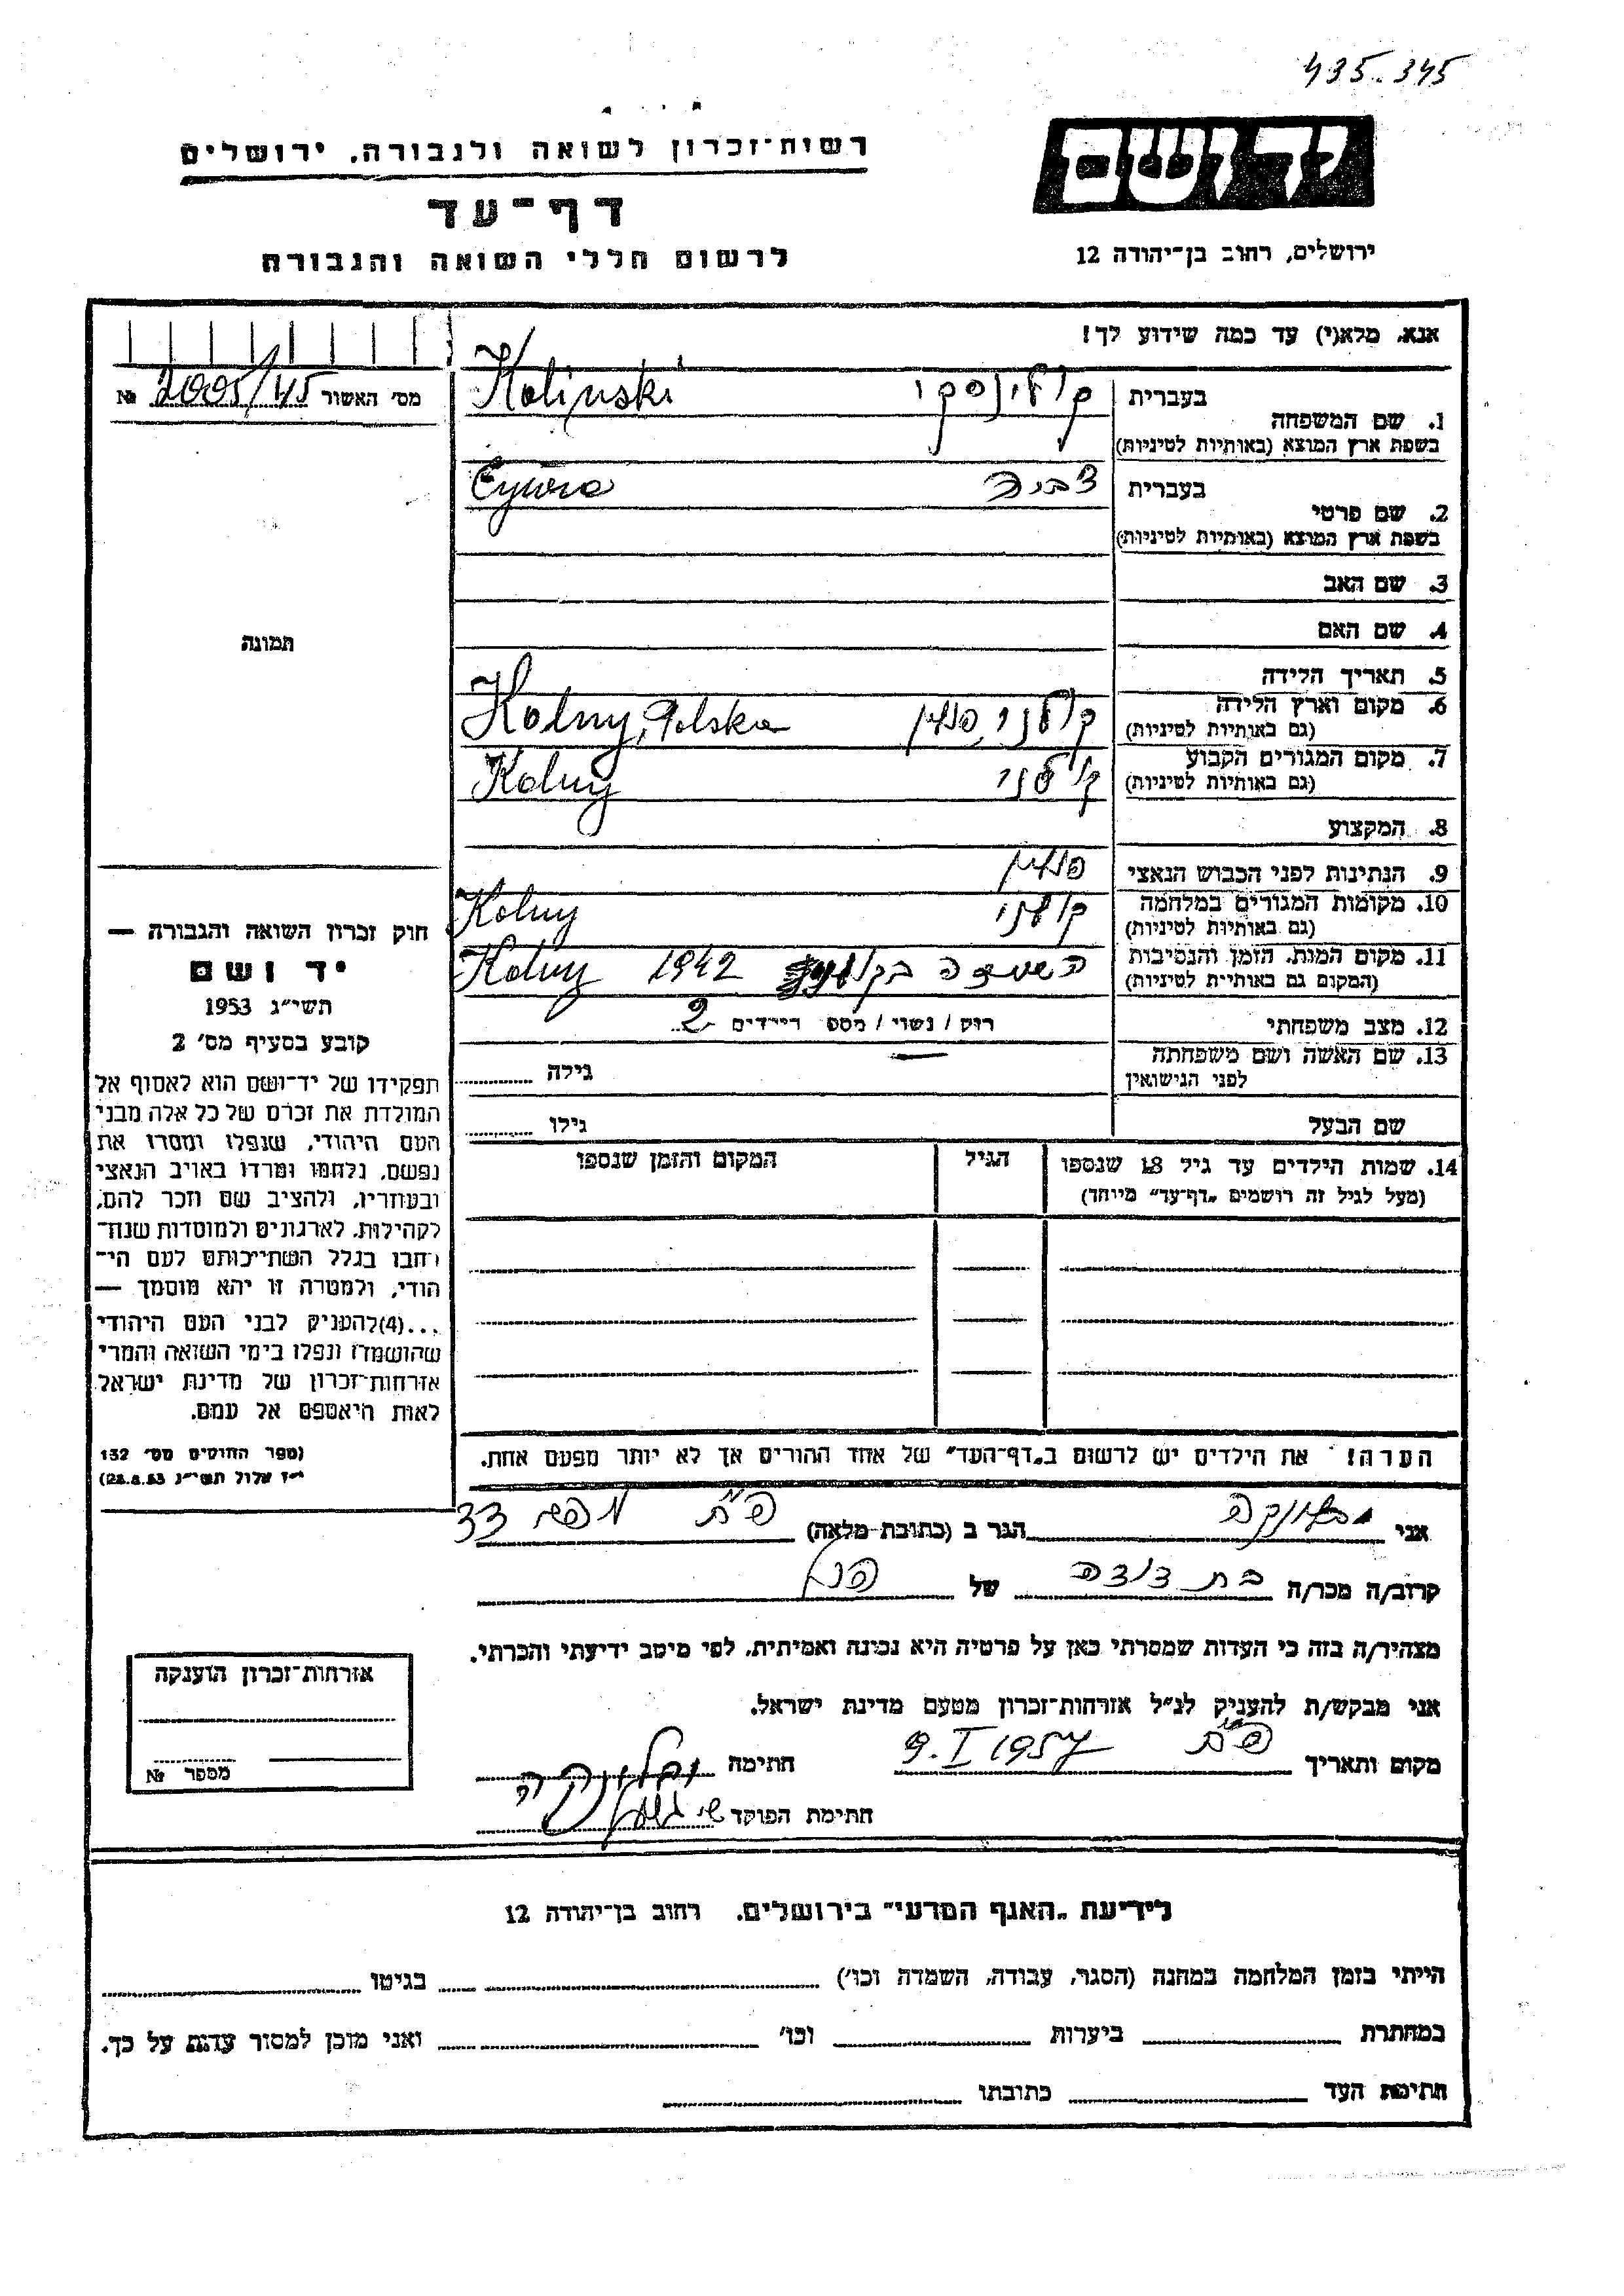 435-345
רשות־זכרון לשואה ולגבורה, ירושלים
יד ושם
דף־עד
לרשום חללי השואה והגבורה
ירושלים, רחוב בן־יהודה 12
אנא, מלא(י) עד כמה שידוע לך!
מס' האשור 2005/45 №
תמונה
1. שם המשפחה
בעברית קולינסקי Kolinski
בשפת ארץ המוצא (באותיות לטיניות)
2. שם פרטי
בעברית צביה Cywia
בשפת ארץ המוצא (באותיות לטיניות)
3. שם האב
4. שם האם
5. תאריך הלידה
6. מקום וארץ הלידה קולני, פולין Kolny, Polska
(גם באותיות לטיניות)
7. מקום המגורים הקבוע קולני Kolny
(גם באותיות לטיניות)
8. המקצוע
9. הנתינות לפני הכבוש הנאצי פולין
10. מקומות המגורים במלחמה קולני Kolny
(גם באותיות לטיניות)
11. מקום המות, הזמן והנסיבות השמדה 1942 Kolny
(המקום גם באותיות לטיניות)
12. מצב משפחתי רווק / נשוי / מספ ריידים 2
13. שם האשה ושם משפחתה
לפני הנישואין גילה
שם הבעל גילו
14. שמות הילדים עד גיל 18 שנספו הגיל המקום והזמן שנספו
(מעל לגיל זה רושמים „דף־עד" מיוחד)
הערה! את הילדים יש לרשום ב„דף־העד" של אחד ההורים אך לא יותר מפעם אחת.
חוק זכרון השואה והגבורה —
יד ושם
תשי"ג 1953
קובע בסעיף מס' 2
תפקידו של יד־ושם הוא לאסוף אל
המולדת את זכרם של כל אלה מבני
העם היהודי, שנפלו ומסרו את
נפשם, נלחמו ומרדו באויב הנאצי
ובעוזריו, ולהציב שם וזכר להם,
לקהילות, לארגונים ולמוסדות שנח־
רחבו בגלל השתייכותם לעם הי־
הודי, ולמטרה זו יהא מוסמך —
...(4) להעניק לבני העם היהודי
שהושמדו ונפלו בימי השואה והמרי
אזרחות־זכרון של מדינת ישראל
לאות היאספם אל עמם.
(ספר החוקים מס' 132
י"ז אלול תשי"ג 28.8.53)
אני הגר ב (כתובת מלאה) פ"ת 33
קרוב/ה מכר/ה בת דודה של
מצהיר/ה בזה כי העדות שמסרתי כאן על פרטיה היא נכונה ואמיתית, לפי מיטב ידיעתי והכרתי.
אני מבקש/ת להעניק לנ"ל אזרחות־זכרון מטעם מדינת ישראל.
מקום ותאריך פ"ת 9.I 1957 חתימה
חתימת הפוקד
אזרחות־זכרון הוענקה
מספר №
לידיעת „האגף המדעי" בירושלים, רחוב בן־יהודה 12
הייתי בזמן המלחמה במחנה (הסגר, עבודה, השמדה וכו') בגיטו
במחתרת ביערות וכו' ואני מוכן למסור עדות על כך.
חתימת העד כתובתו